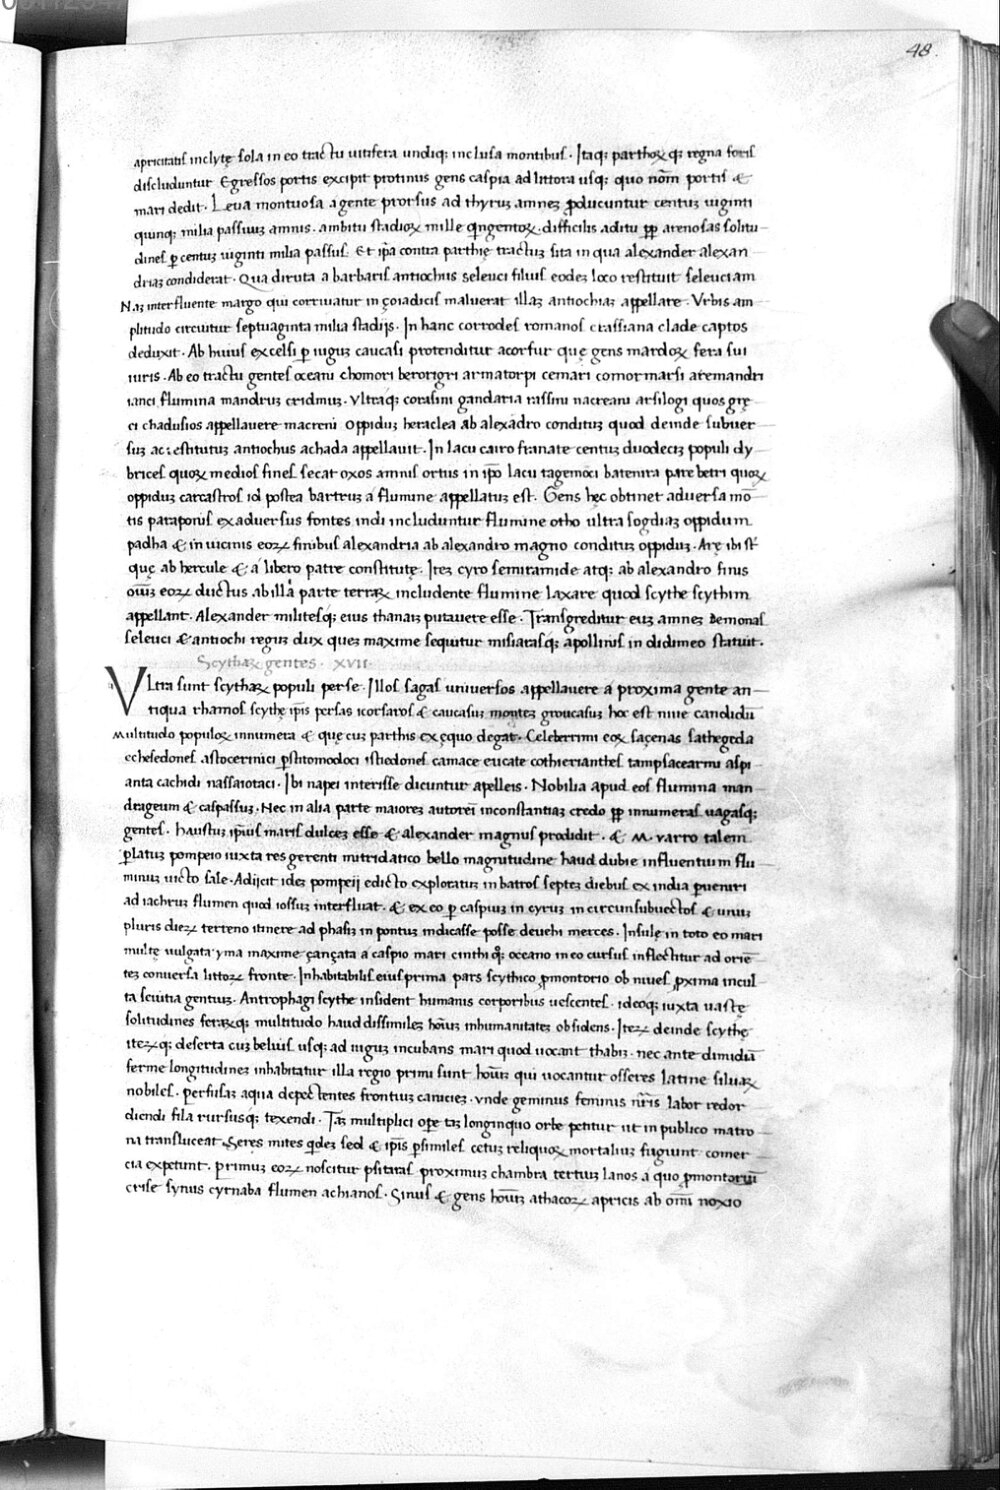 48.
apricitatis inclytę sola in eo tractu uitifera undiq; inclusa montibus. Itaq; parthoꝝ q; regna foris
discluduntur Egressos portis excipit protinus gens caspia ad littora usq; quo nom̄ portis &
mari dedit. Leua montuosa a gente prorsus ad thyruꝫ amneꝫ ꝓducuntur centuꝫ uiginti
quinq; milia passuuꝫ amnis. ambitu stadioꝝ mille qngentoꝝ. difficilis aditu ꝓp arenosas solitu
dines ꝑ centuꝫ uiginti milia passus. Et ip̄a contra parthię tractuꝫ sita in qua alexander alexan
driaꝫ condiderat. Qua diruta a barbaris antiochus seleuci filius eodeꝫ loco restituit seleuciam
Naꝫ interfluente margo qui corriuatur in çoiadicis maluerat illaꝫ antiochiaꝫ appellare. Vrbis am
plitudo circuitur septuaginta milia stadijs. In hanc corrodes romanos crassiana clade captos
deduxit. Ab huius excelsi ꝑ iuguꝫ caucasi protenditur acorsur quę gens mardoꝝ fera sui
iuris. Ab eo tractu gentes oceani chomori berorigri armatorpi cemari comor marsi aremandri
ianci flumina mandruꝫ cridmuꝫ. Vltraq; corasini gandaria rassini nacreani arsilogi quos grę
ci chadusios appellauere macreni oppiduꝫ heraclea ab alexādro conditus quod deinde subuer
suꝫ ac restitutuꝫ antiochus achada appellauit. In lacu cairo franate centuꝫ duodeciꝫ populi dy
brices quoꝝ medios fines secat oxos amnis ortus in ip̄o lacu tagemoci batenira pare betri quoꝝ
oppiduꝫ carcastros id postea bartruꝫ a flumine appellatuꝫ est. Gens hęc obtinet aduersa mō
tis paraponis exaduersus fontes indi includuntur flumine otho ultra sogdiaꝫ oppidum
padha & in uicinis eoꝝ finibus alexandria ab alexandro magno conditum oppiduꝫ. Arę ibi st̄
quę ab hercule & a libero patre constitutę. Iteꝫ cyro semiramide atq; ab alexandro finis
oīuꝫ eoꝝ ductus ab illa parte terraꝝ includente flumine laxare quod scythe scythim
appellant. Alexander militesq; eius thanaiꝫ putauere esse. Transgreditur euꝫ amneꝫ demonas
seleuci & antiochi reguꝫ dux queꝫ maxime sequitur misiarasq; apollinis in didimeo statuit.
Scythaꝝ gentes. xvii.
Vltra sunt scythaꝝ populi perse. Illos sagas uniuersos appellauere a proxima gente an
tiqua rhamos scythę ip̄is persas icorsaros & caucasuꝫ monteꝫ groucasuꝫ hoc est niue candidū
Multitudo populoꝝ innumera & quę cuꝫ parthis ex ęquo degat. Celeberrimi eoꝝ saçenas sathegeda
echesedones astocernici ꝑstitomodoci istiedones camace eucate cothierianthes tampsacearmi aspi
anta cachidi nassaiotaci. Ibi napei interisse dicuntur apelleis. Nobilia apud eos flumina man
drageum & caspassuꝫ. Nec in alia parte maioreꝫ autorei inconstantiaꝫ credo ꝓp innumeras uagasq;
gentes. Haustuꝫ ip̄ius maris dulceꝫ esse & alexander magnus prodidit. & M. varro talem
ꝑlatuꝫ pompeio iuxta res gerenti mitridatico bello magnitudine haud dubie influentium flu
minuꝫ uicto sale. Adijcit ideꝫ pompeij edicto exploratuꝫ in batros septeꝫ diebus ex india ꝑueniri
ad iachruꝫ flumen quod iossuꝫ interfluat. & ex eo ꝑ caspiuꝫ in cyruꝫ in circunsubuectos & unuꝫ
pluris dieꝝ terreno itinere ad phasiꝫ in pontuꝫ indicasse posse deuehi merces. Insulę in toto eo mari
multę uulgata yma maxime çançata a caspio mari cinthi q; oceano in eo cursus inflectitur ad orie
teꝫ conuersa littoꝝ fronte. Inhabitabilis eius prima pars scythico ꝓmontorio ob niues ꝓxima incul
ta seuitia gentiuꝫ. Antrophagi scythe insident humanis corporibus uescentes. ideoq; iuxta uastę
solitudines feraꝝq; multitudo haud dissimileꝫ hoīuꝫ inhumanitateꝫ obsidens. Iteꝝ deinde scythę
iteꝝq; deserta cuꝫ beluis usq; ad iuguꝫ incubans mari quod uocant thabiꝫ. nec ante dimidiā
ferme longitudineꝫ inhabitatur illa regio primi sunt hoīuꝫ qui uocantur osseres latine siluaꝝ
nobiles. perfusaꝫ aqua depectentes frontiuꝫ canicieꝫ. vnde geminus feminis nr̄is labor redor
diendi fila rursusq; texendi. Taꝫ multiplici oꝑe taꝫ longinquo orbe petitur ut in publico matro
na transluceat. Seres mites qdeꝫ sed & ip̄is ꝑsimiles cetus reliquoꝝ mortaliuꝫ fugiunt comer
cia expetunt. primuꝫ eoꝝ noscitur psitaras proximuꝫ chambra tertiuꝫ lanos a quo ꝓmontoriū
crise synus cyrnaba flumen achianos. Sinus & gens hoīuꝫ athacoꝝ apricis ab om̄i noxio